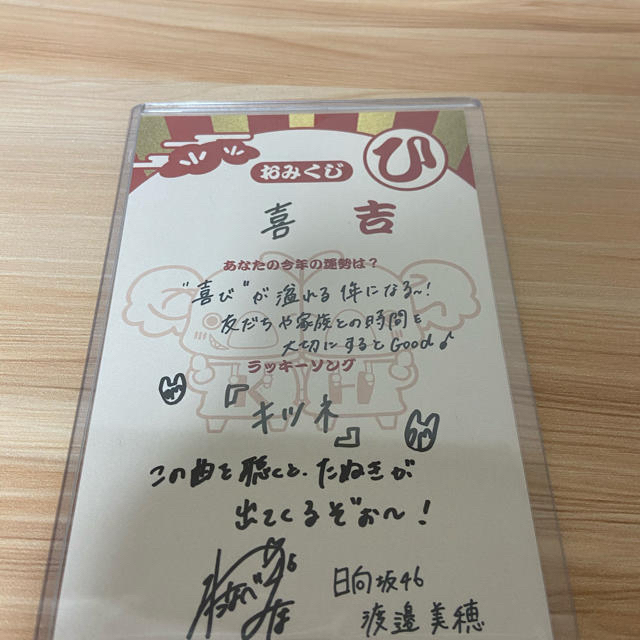 ひ
おみくじ
喜 吉
あなたの今年の運勢は？
"喜び"が溢れる年になる〜！
友だちや家族との時間を
大切にするとGood♪
ラッキーソング
『キツネ』
この曲を聴くと、たぬきが
出てくるぞぉ〜！
日向坂46
渡邉美穂